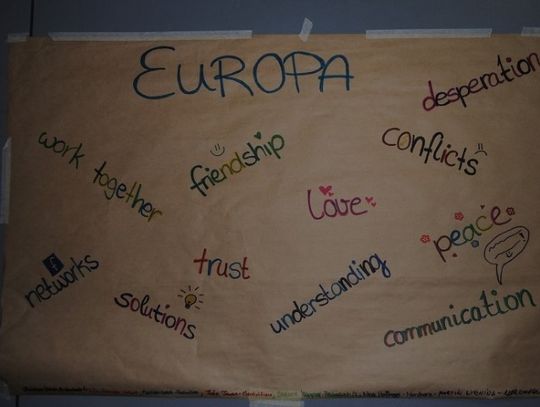 EUROPA
desperation
conflicts
work together
friendship
love
peace
trust
networks
f
understanding
solutions
communication